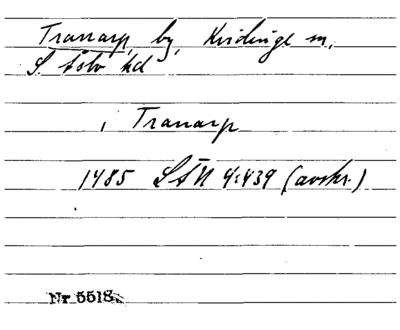 Tranarp, by, Kvidinge sn,
S. Åsbo hd
i Tranarp
1485 LÄU 4:439 (avskr.)
Nr 5518.